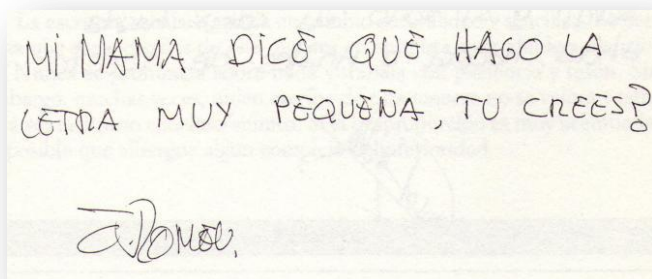 MI MAMA DICE QUE HAGO LA
LETRA MUY PEQUEÑA TU CREES?